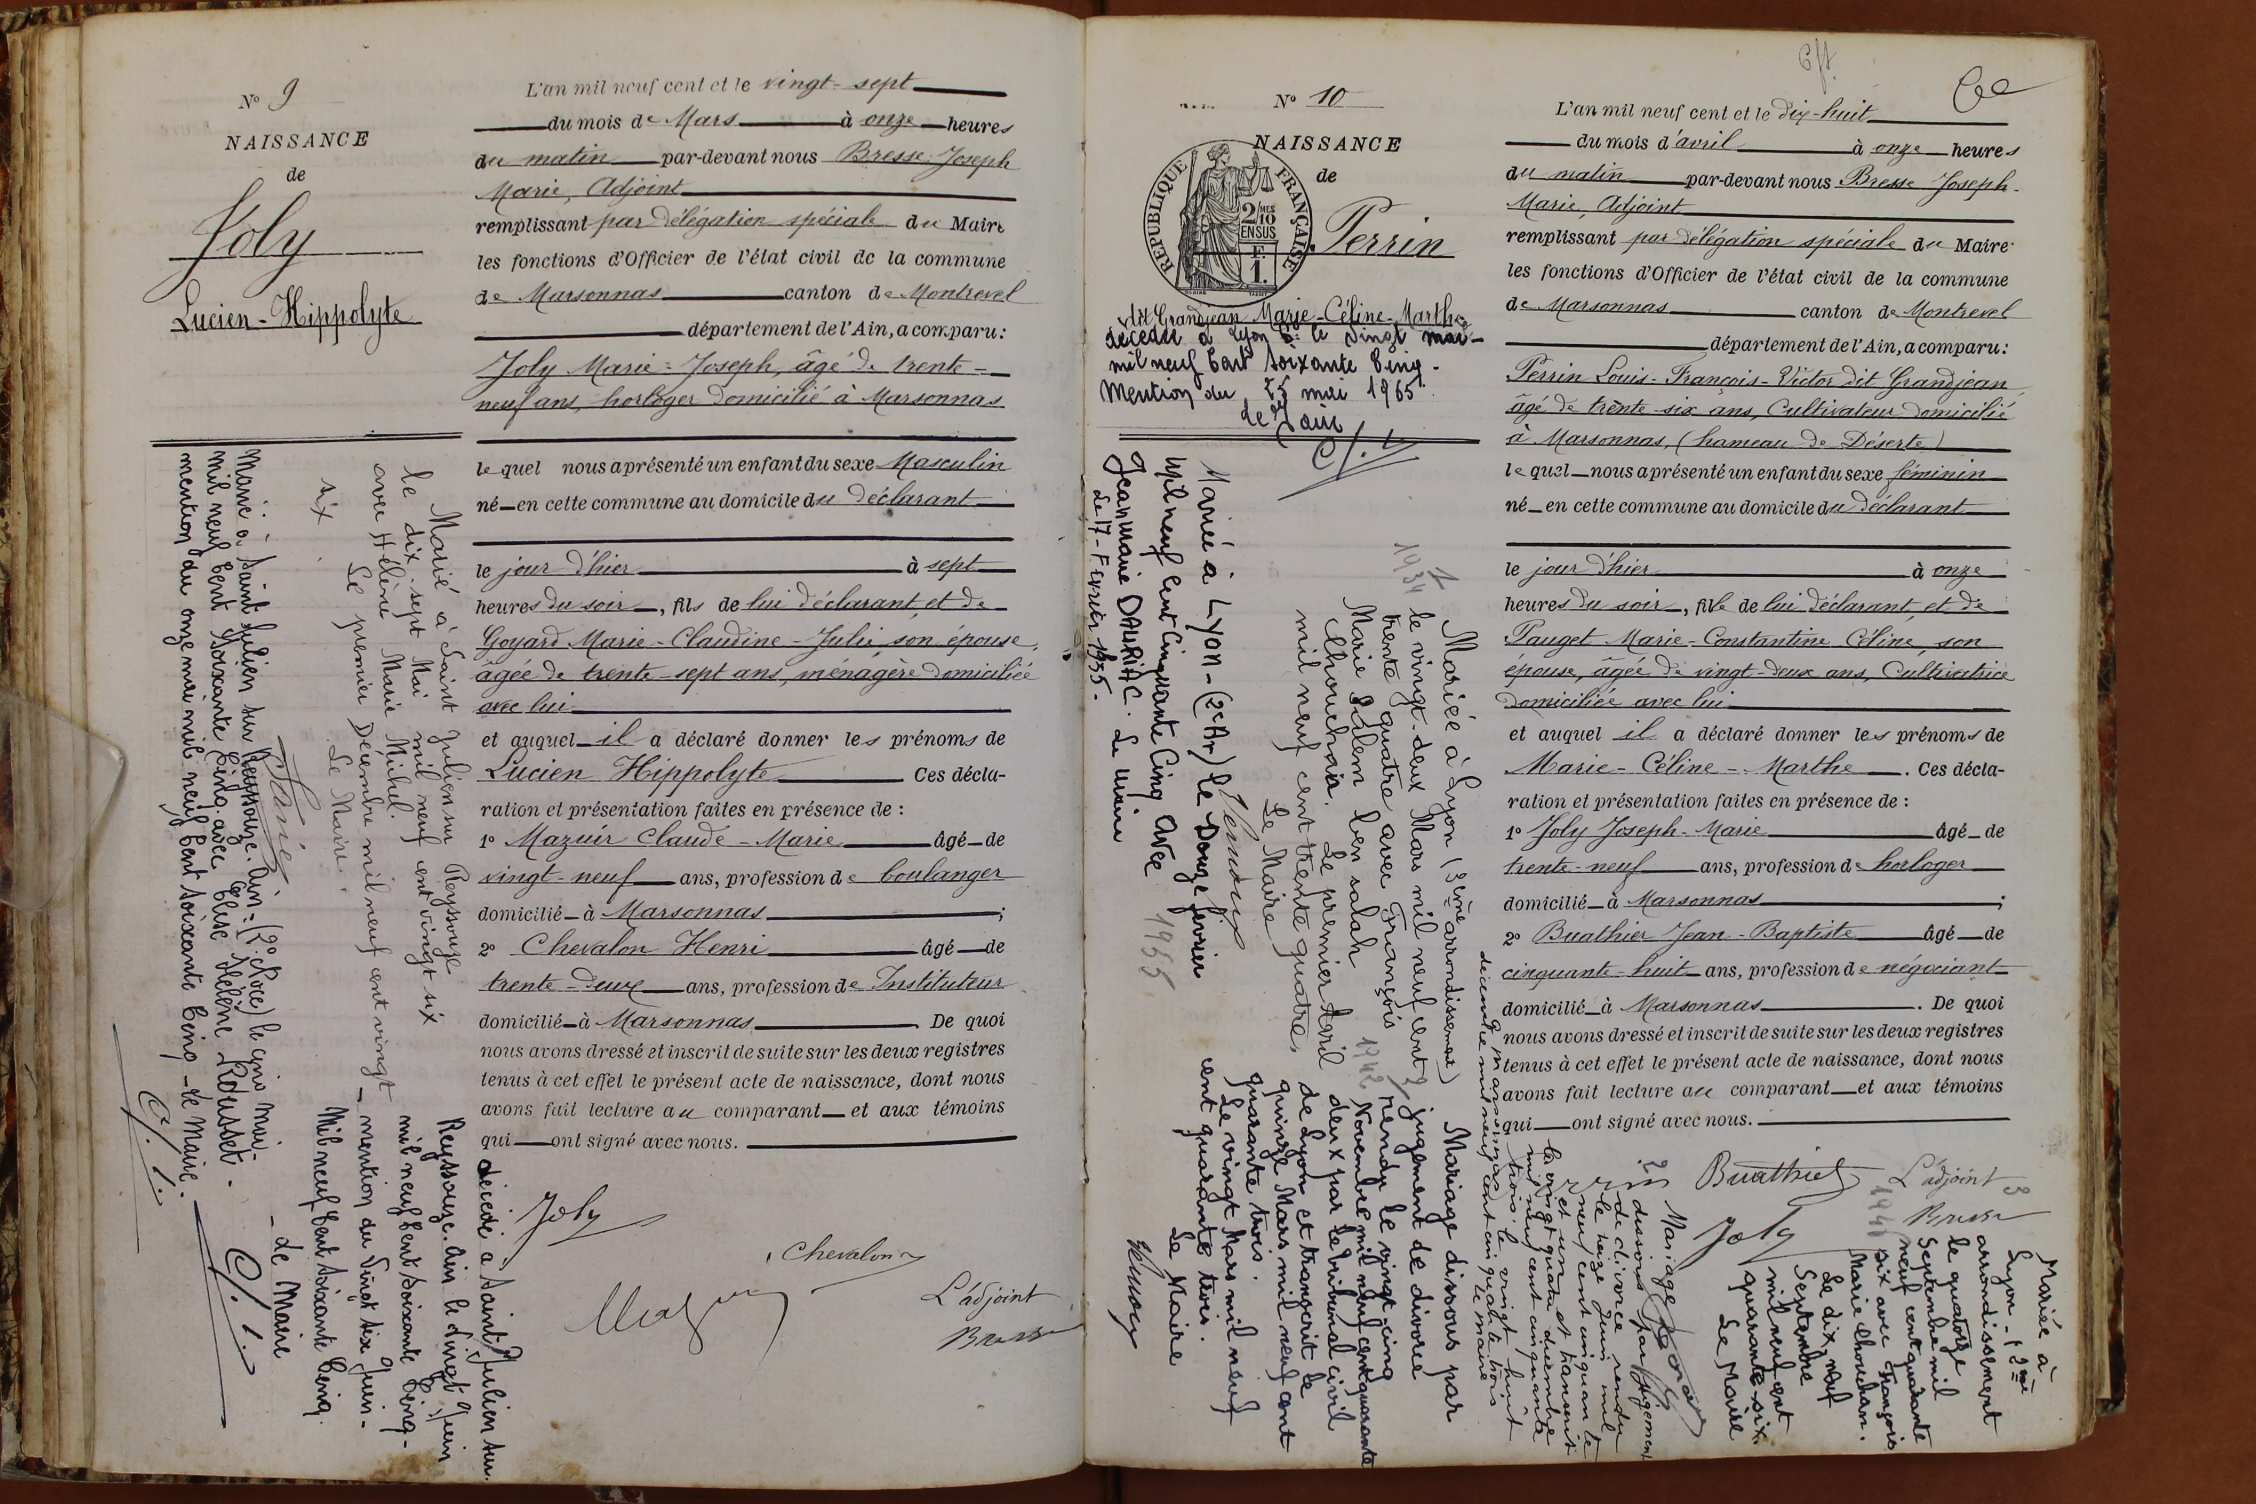 N° 9
NAISSANCE
de
Joly
Lucien-Hippolyte
L'an mil neuf cent et le vingt-sept
du mois de Mars à onze heures
du matin par-devant nous Bresse Joseph
Marie, Adjoint
remplissant par délégation spéciale du Maire
les fonctions d'Officier de l'état civil de la commune
de Marsonnas canton de Montrevel
département de l'Ain, a comparu:
Joly Marie-Joseph, âgé de trente-
neuf ans, horloger domicilié à Marsonnas
le quel nous a présenté un enfant du sexe Masculin
né en cette commune au domicile du déclarant
le jour d'hier à sept
heures du soir, fils de lui déclarant, et de
Goyard Marie-Claudine-Julie, son épouse,
âgée de trente-sept ans, ménagère domiciliée
avec lui
et auquel il a déclaré donner les prénoms de
Lucien Hippolyte Ces décla-
ration et présentation faites en présence de :
1° Mazuir Claude-Marie âgé de
vingt-neuf ans, profession de boulanger
domicilié à Marsonnas ;
2° Chevalon Henri âgé de
trente-deux ans, profession de Instituteur
domicilié à Marsonnas. De quoi
nous avons dressé et inscrit de suite sur les deux registres
tenus à cet effet le présent acte de naissance, dont nous
avons fait lecture au comparant et aux témoins
qui ont signé avec nous.
Joly
Chevalon
L'adjoint
Bresse
Marié à Saint Julien sur Reyssouze
le dix-sept Mai mil neuf cent vingt six
avec Hélène Marie Michel.
Le premier Décembre mil neuf cent vingt
six. Le Maire.
Marié à Saint Julien sur Reyssouze. Ain. (2e Noce) le cinq mai
mil neuf cent soixante cinq avec Elise Hélène Rousset.
mention du onze mai mil neuf cent soixante cinq - le Maire.
décédé à Saint Julien sur
Reyssouze. Ain le vingt juin
mil neuf cent soixante cinq-
mention du vingt six juin-
mil neuf cent soixante cinq.
- Le Maire
N° 10
NAISSANCE
de
REPUBLIQUE FRANÇAISE
2/10 MES
EN SUS
F.
1.
Perrin
dit Grandjean Marie-Céline-Marthe
décédée à Lyon 3e le vingt mai-
mil neuf cent soixante cinq-
Mention du 25 mai 1965
L'an mil neuf cent et le dix-huit
du mois d'avril à onze heures
du matin par-devant nous Bresse Joseph-
Marie, Adjoint
remplissant par délégation spéciale du Maire
les fonctions d'Officier de l'état civil de la commune
de Marsonnas canton de Montrevel
département de l'Ain, a comparu:
Perrin Louis-François-Victor dit Grandjean
âgé de trente-six ans, Cultivateur domicilié
à Marsonnas, (hameau de Déserte)
le quel nous a présenté un enfant du sexe féminin
né en cette commune au domicile du déclarant
le jour d'hier à onze
heures du soir, fille de lui déclarant, et de
Pauget Marie-Constantine Céline, son
épouse, âgée de vingt-deux ans, Cultivatrice
domiciliée avec lui
et auquel il a déclaré donner les prénoms de
Marie-Céline-Marthe. Ces décla-
ration et présentation faites en présence de :
1° Joly Joseph-Marie âgé de
trente-neuf ans, profession de horloger
domicilié à Marsonnas ;
2° Buathier Jean-Baptiste âgé de
cinquante-huit ans, profession de négociant
domicilié à Marsonnas. De quoi
nous avons dressé et inscrit de suite sur les deux registres
tenus à cet effet le présent acte de naissance, dont nous
avons fait lecture au comparant et aux témoins
qui ont signé avec nous.
Buathier
L'adjoint
Bresse
Joly
1934
Mariée à Lyon (3ème arrondissement)
le vingt-deux Mars mil neuf cent
trente quatre avec François
Marie Salem ben salah
Chouchan. Le premier Avril
mil neuf cent trente quatre,
Le Maire
Mariée à Lyon-(2e Ar) le Douze février
Mil neuf Cent Cinquante Cinq avec
Jean Marie DAURIAC. Le Maire
Le 17-Février 1955.
1955
1942
Mariage dissous par
jugement de divorce
rendu le vingt cinq
Novembre mil neuf cent quarante
deux par le tribunal civil
de Lyon et transcrit le
quinze Mars mil neuf cent
quarante trois.
Le vingt Mars mil neuf
cent quarante trois.
Le Maire
2 Mariage
dissous par jugement
de divorce rendu
le treize Juin mil
neuf cent cinquante
et un et transcrit
le vingt quatre décembre
mil neuf cent cinquante
trois. le vingt huit
décembre mil neuf cent cinquante trois
le maire
3
1946
Mariée à
Lyon - (2ème
arrondissement
le quatorze
Septembre mil
neuf cent quarante
six avec François
Marie Chouchan.
Le dix neuf
Septembre
mil neuf cent
quarante-six.
Le Maire